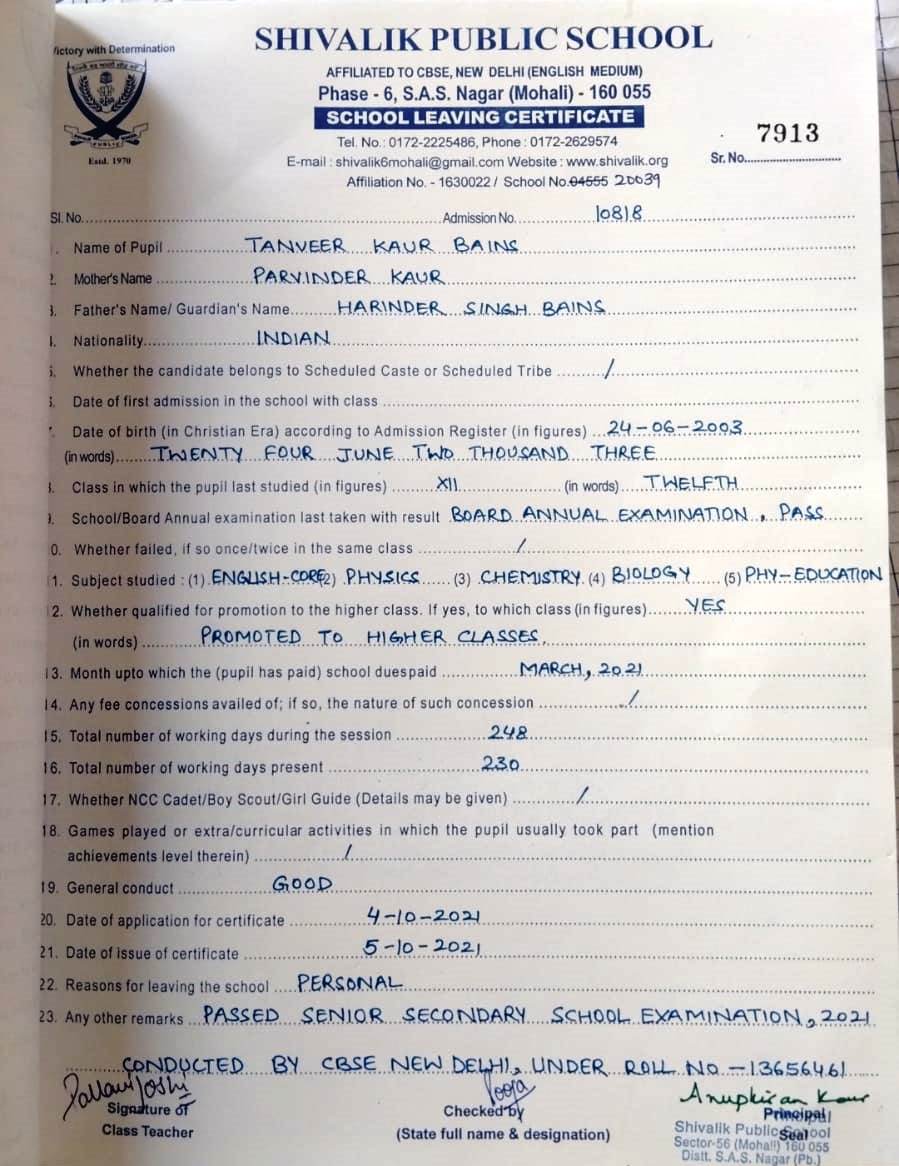 SHIVALIK PUBLIC SCHOOL
ictory with Determination
AFFILIATED TO CBSE, NEW DELHI (ENGLISH MEDIUM)
Phase - 6, S.A.S. Nagar (Mohali) - 160 055
SCHOOL LEAVING CERTIFICATE
PUBLIC
Estd. 1970
Tel. No.: 0172-2225486, Phone : 0172-2629574
7913
E-mail : shivalik6mohali@gmail.com Website : www.shivalik.org
Sr. No.
Affiliation No. - 1630022 / School No. 04555 20039
Sl. No. Admission No. 10818
. Name of Pupil TANVEER KAUR BAINS
2. Mother's Name PARVINDER KAUR
3. Father's Name/ Guardian's Name HARINDER SINGH BAINS
. Nationality INDIAN
. Whether the candidate belongs to Scheduled Caste or Scheduled Tribe /
. Date of first admission in the school with class
. Date of birth (in Christian Era) according to Admission Register (in figures) 24-06-2003
(in words) TWENTY FOUR JUNE TWO THOUSAND THREE
. Class in which the pupil last studied (in figures) XII (in words) TWELFTH
. School/Board Annual examination last taken with result BOARD ANNUAL EXAMINATION, PASS
0. Whether failed, if so once/twice in the same class /
1. Subject studied : (1) ENGLISH-CORE (2) PHYSICS (3) CHEMISTRY (4) BIOLOGY (5) PHY-EDUCATION
2. Whether qualified for promotion to the higher class. If yes, to which class (in figures) YES
(in words) PROMOTED TO HIGHER CLASSES.
13. Month upto which the (pupil has paid) school duespaid MARCH, 2021
14. Any fee concessions availed of; if so, the nature of such concession /
15. Total number of working days during the session 248
16. Total number of working days present 230
17. Whether NCC Cadet/Boy Scout/Girl Guide (Details may be given) /
18. Games played or extra/curricular activities in which the pupil usually took part (mention
achievements level therein) /
19. General conduct GOOD
20. Date of application for certificate 4-10-2021
21. Date of issue of certificate 5-10-2021
22. Reasons for leaving the school PERSONAL
23. Any other remarks PASSED SENIOR SECONDARY SCHOOL EXAMINATION, 2021
CONDUCTED BY CBSE NEW DELHI, UNDER ROLL NO -13656461
Pallavi Joshi Pooja Anupkiran Kaur
Signature of Checked by Principal
Class Teacher (State full name & designation) Seal
Shivalik Public School
Sector-56 (Mohali) 160 055
Distt. S.A.S. Nagar (Pb.)